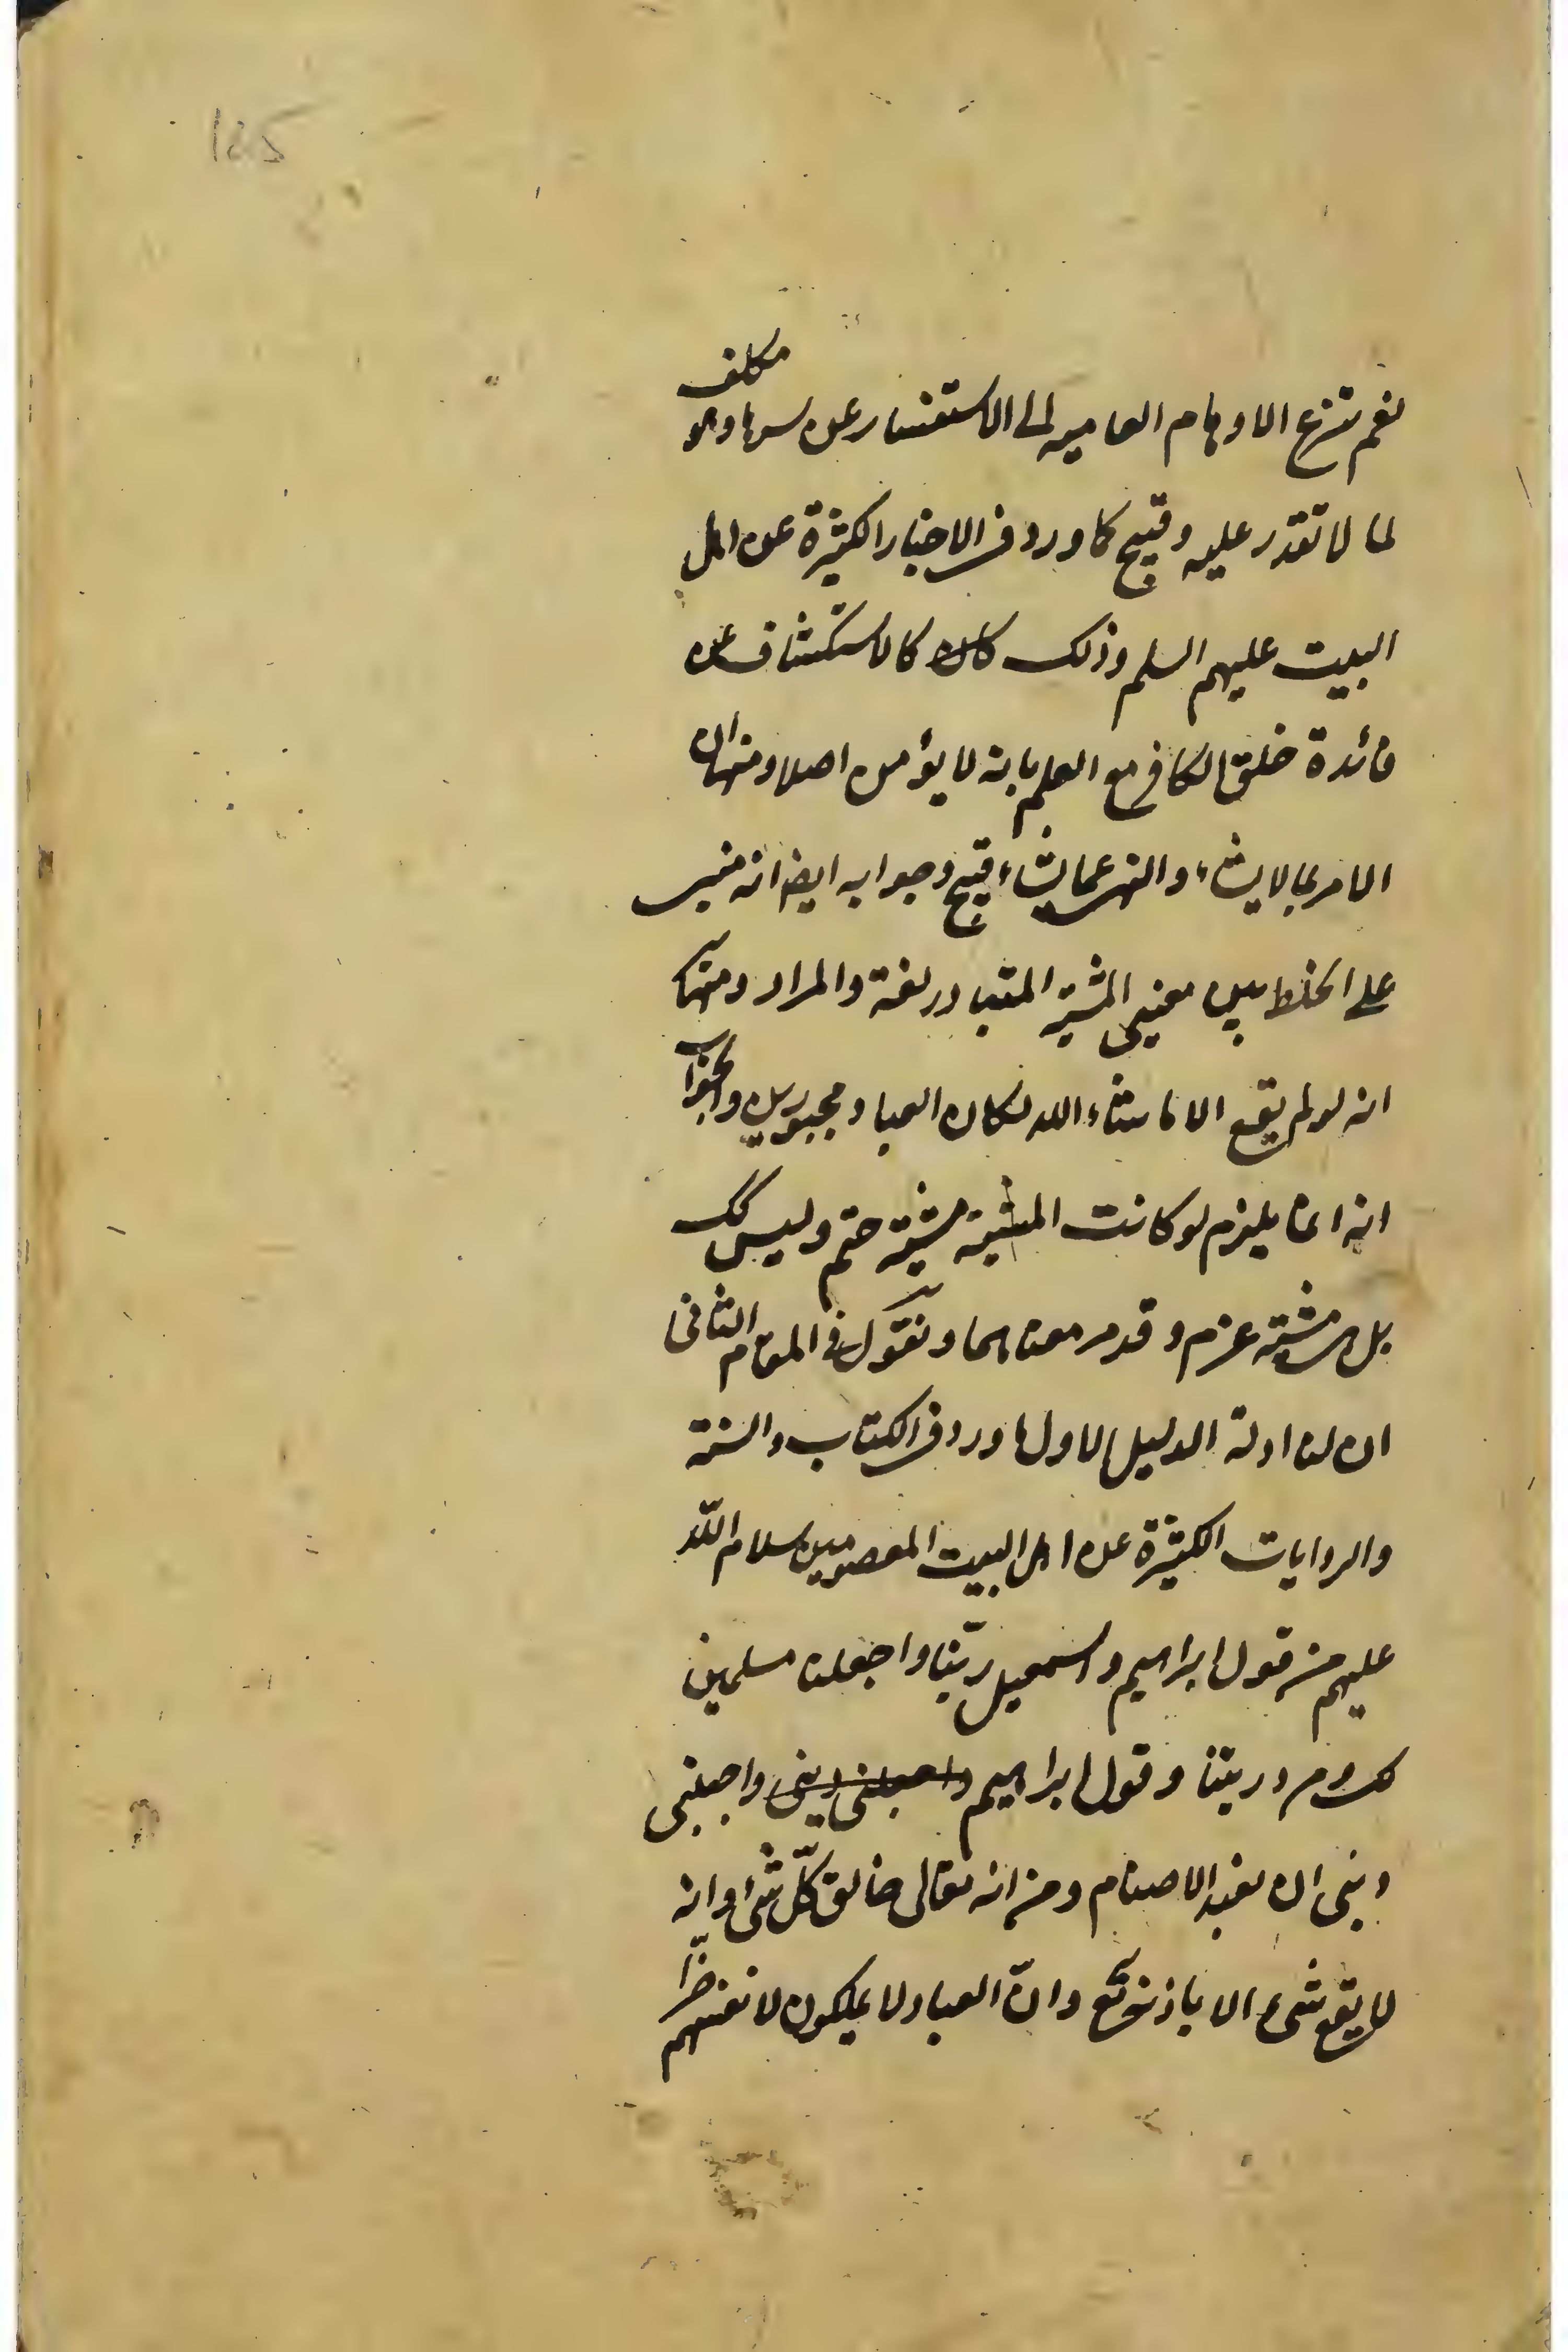 نعم تنزع الاوهام العامیه الی الاستفسار عن سرها وهو مکلف
لما لا تقدر علیه وقبیح کما ورد فی الاخبار الکثیرة عن اهل
البیت علیهم السلم وذلک کالاستکشاف عن
فائدة خلق الکافر مع العلم بانه لا یؤمن اصلا ومنها ان
الامر بما لا یشاء والنهی عما یشاء قبیح وجوابه ایضا انه مبنی
علی الخلط بین معنیی المشیة المتبادر لغة والمراد ومنها
انه لو لم یقع الا ما شاء الله لکان العباد مجبورین والجواب
انه انما یلزم لو کانت المشیة مشیة حتم ولیس کک
بل هی مشیة عزم وقد مر معناهما ونقول فی المقام الثانی
ان لنا ادلة الدلیل الاول ما ورد فی الکتاب والسنة
والروایات الکثیرة عن اهل البیت المعصومین سلام اللّه
علیهم من قول ابراهیم واسمعیل ربّنا واجعلنا مسلمین
لک ومن ذریتنا وقول ابراهیم واجنبنی
وبنی ان نعبد الاصنام ومن انه تعالی خالق کلّ شیء وانه
لا یقع شیء الا باذنه تع وانّ العباد لا یملکون لانفسهم ضرّا